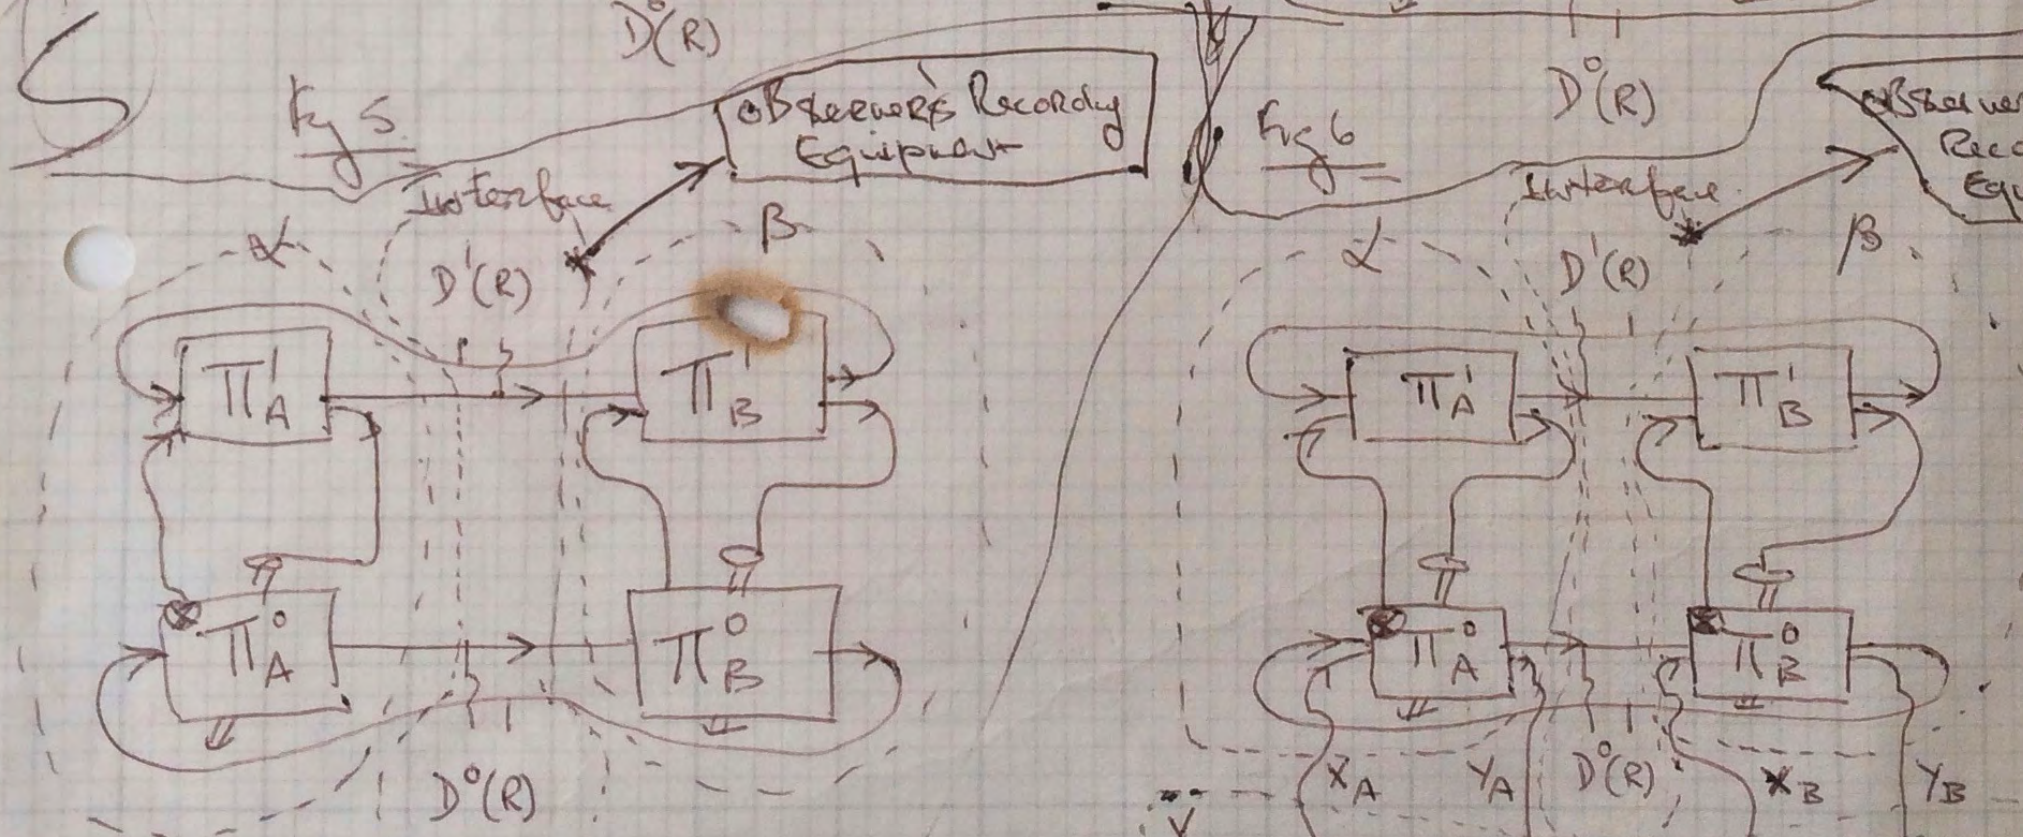 D⁰(R)
Fig 5
Observer's Recording
Equipment
Interface
α
β
D¹(R)
Π¹A
Π¹B
Π⁰A
Π⁰B
D⁰(R)
Fig 6
D⁰(R)
Observer
Reco
Equ
Interface
α
β
D¹(R)
Π¹A
Π¹B
Π⁰A
Π⁰B
XA YA D⁰(R) XB YB